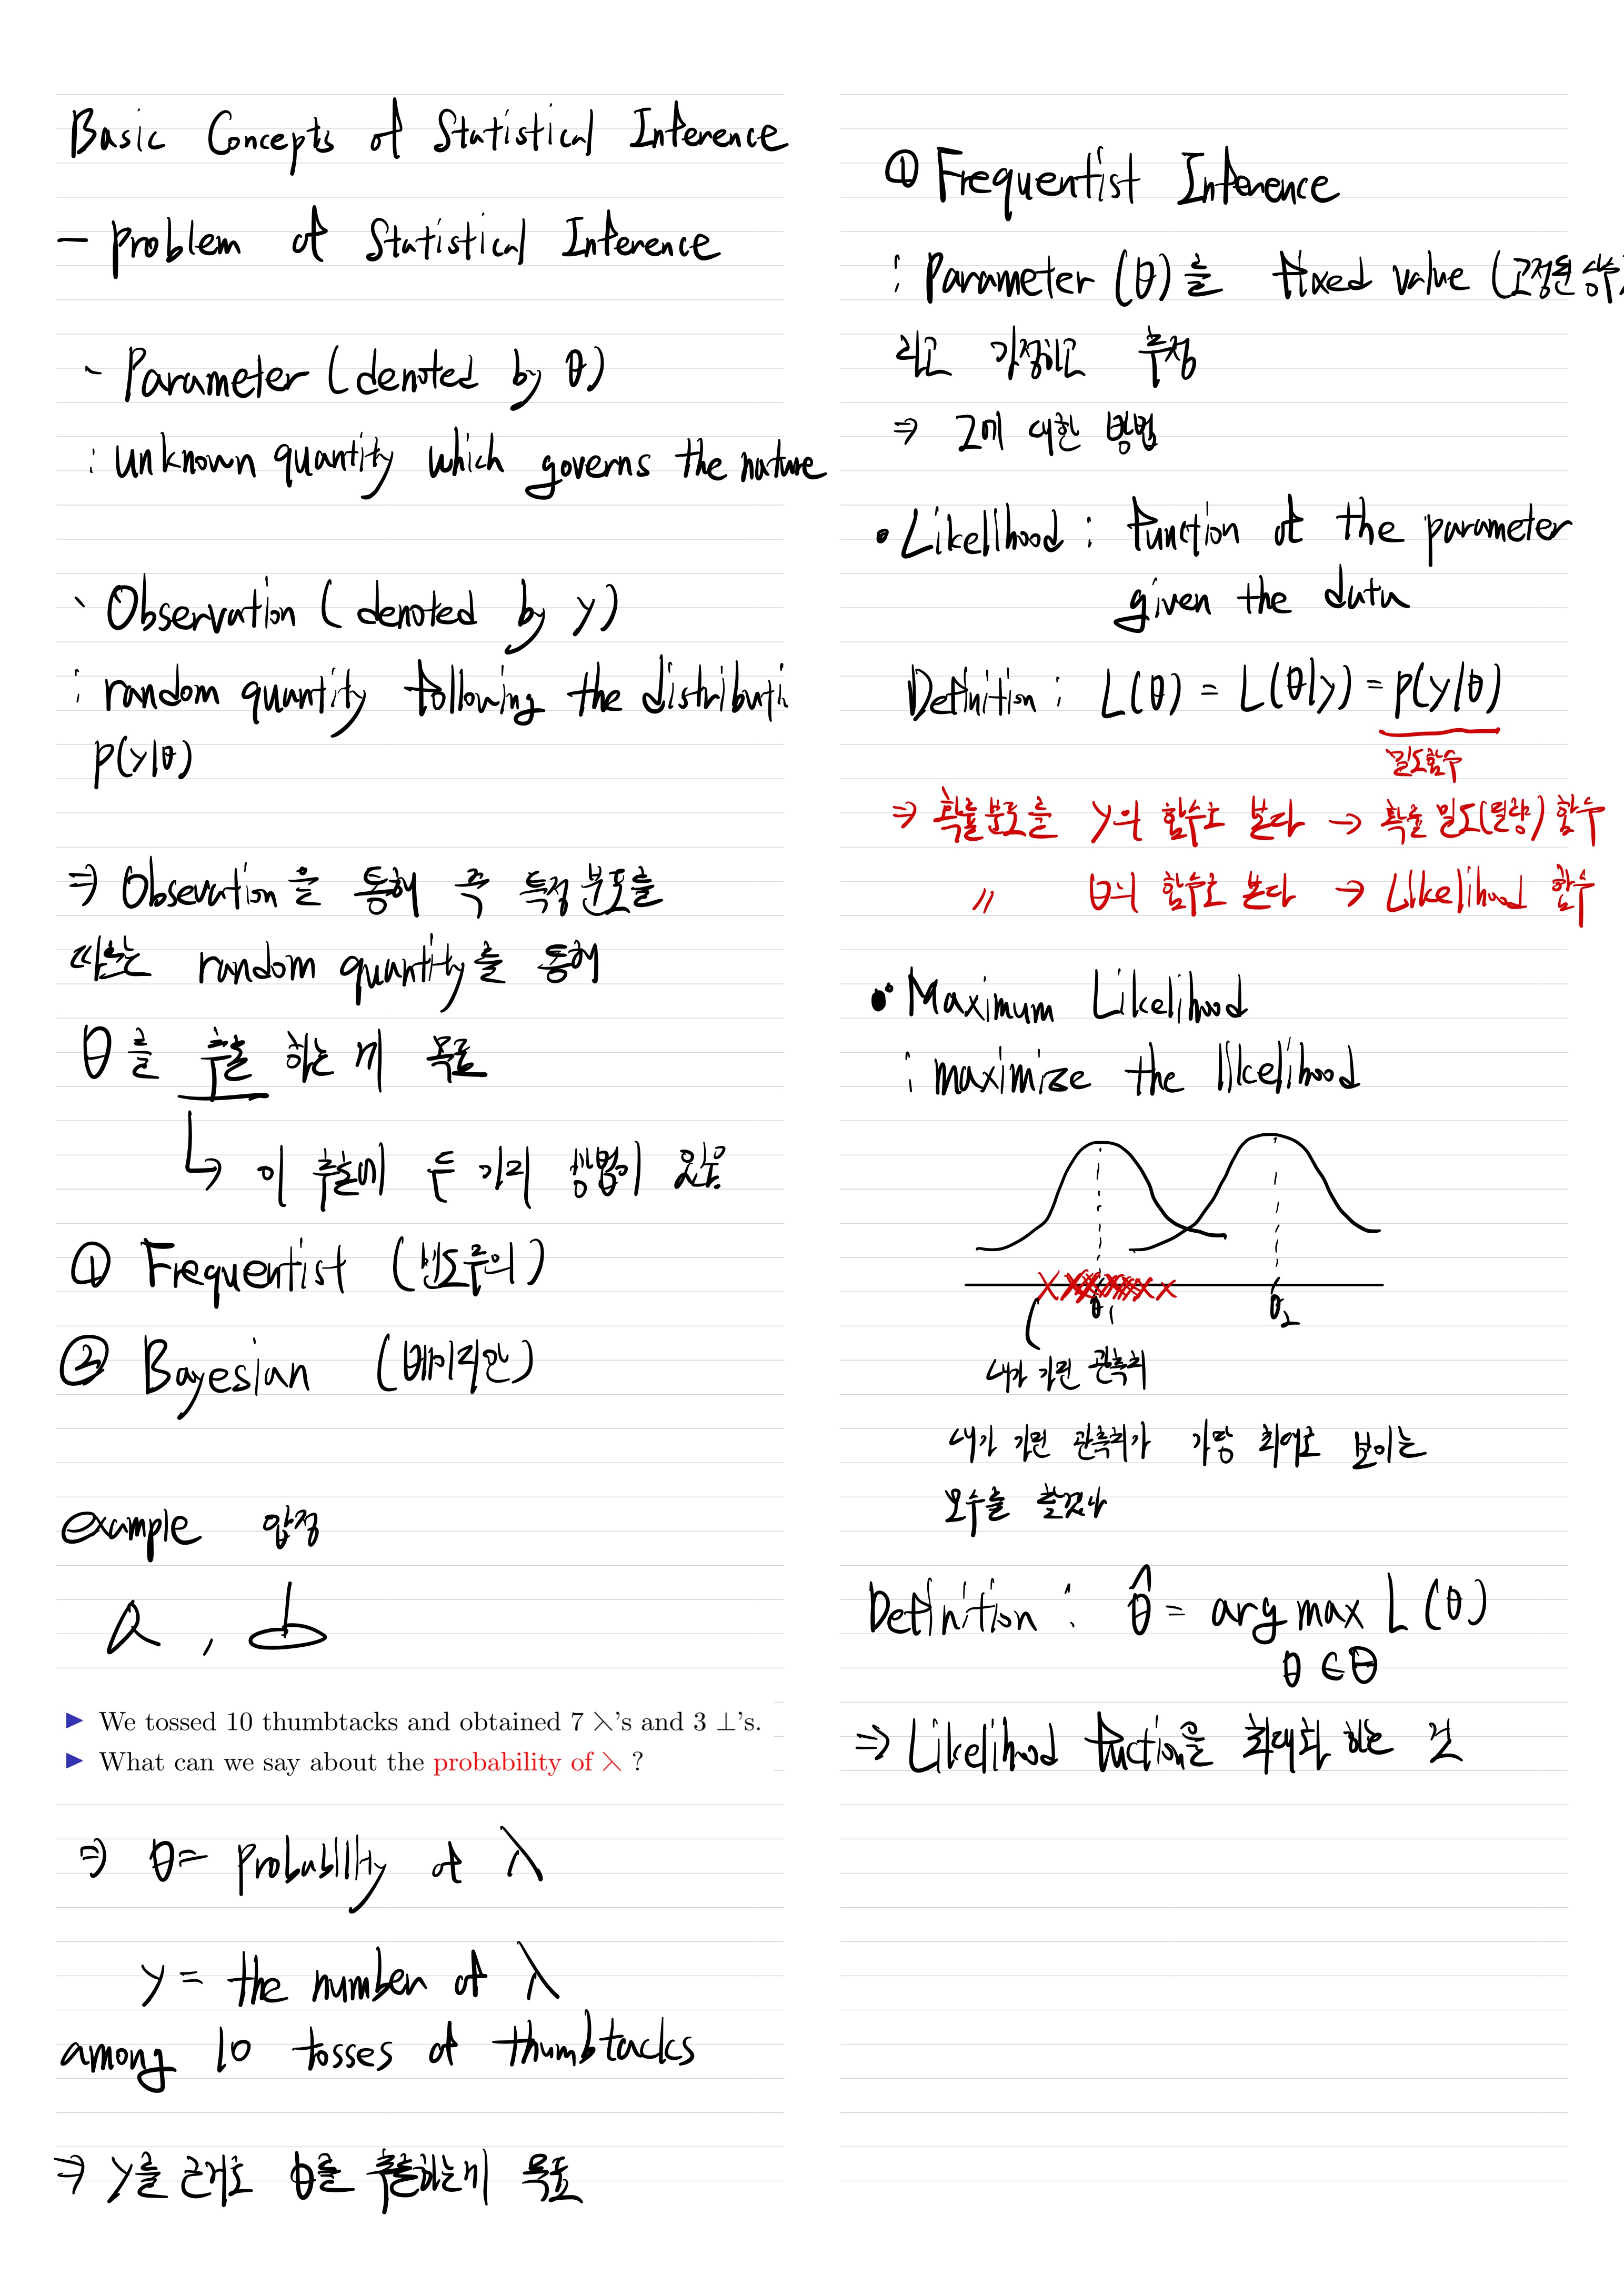 Basic Concepts of Statistical Inference
- problem of Statistical Inference
- Parameter (denoted by θ)
: unknown quantity which governs the nature
- Observation (denoted by y)
: random quantity following the distributi
p(y|θ)
⇒ Obsevation을 통해 즉 특정 분포를
따르는 random quantity를 통해
θ를 추출 하는 게 목표
↳ 이 추출에 두 가지 방법이 있음.
① Frequentist (빈도주의)
② Bayesian (베이지안)
example 압정
⅄ , ⊥
▶ We tossed 10 thumbtacks and obtained 7 ⅄'s and 3 ⊥'s.
▶ What can we say about the probability of ⅄ ?
⇒ θ= probability of λ
y = the number of λ
among 10 tosses of thumbtacks
⇒ y를 근거로 θ를 추출하는게 목표
① Frequentist Inference
: Parameter (θ)를 fixed value (고정된 상수)
라고 가정하고 추정
⇒ 그에 대한 방법
• Likelihood : function of the parameter
given the data
Definition : L(θ) = L(θ|y) = p(y|θ)
밀도함수
⇒ 확률분포를 y의 함수로 본다 → 확률 밀도(질량) 함수
〃 θ의 함수로 본다 → Likelihood 함수
• Maximum Likelihood
: maximize the likelihood
θ₁ θ₂
내가 가진 관측치
내가 가진 관측치가 가장 최대로 보이는
모수를 찾겠다
Definition : θ̂ = arg max L(θ)
θ ∈ Θ
⇒ Likelihood fuction을 최대화 하는 것